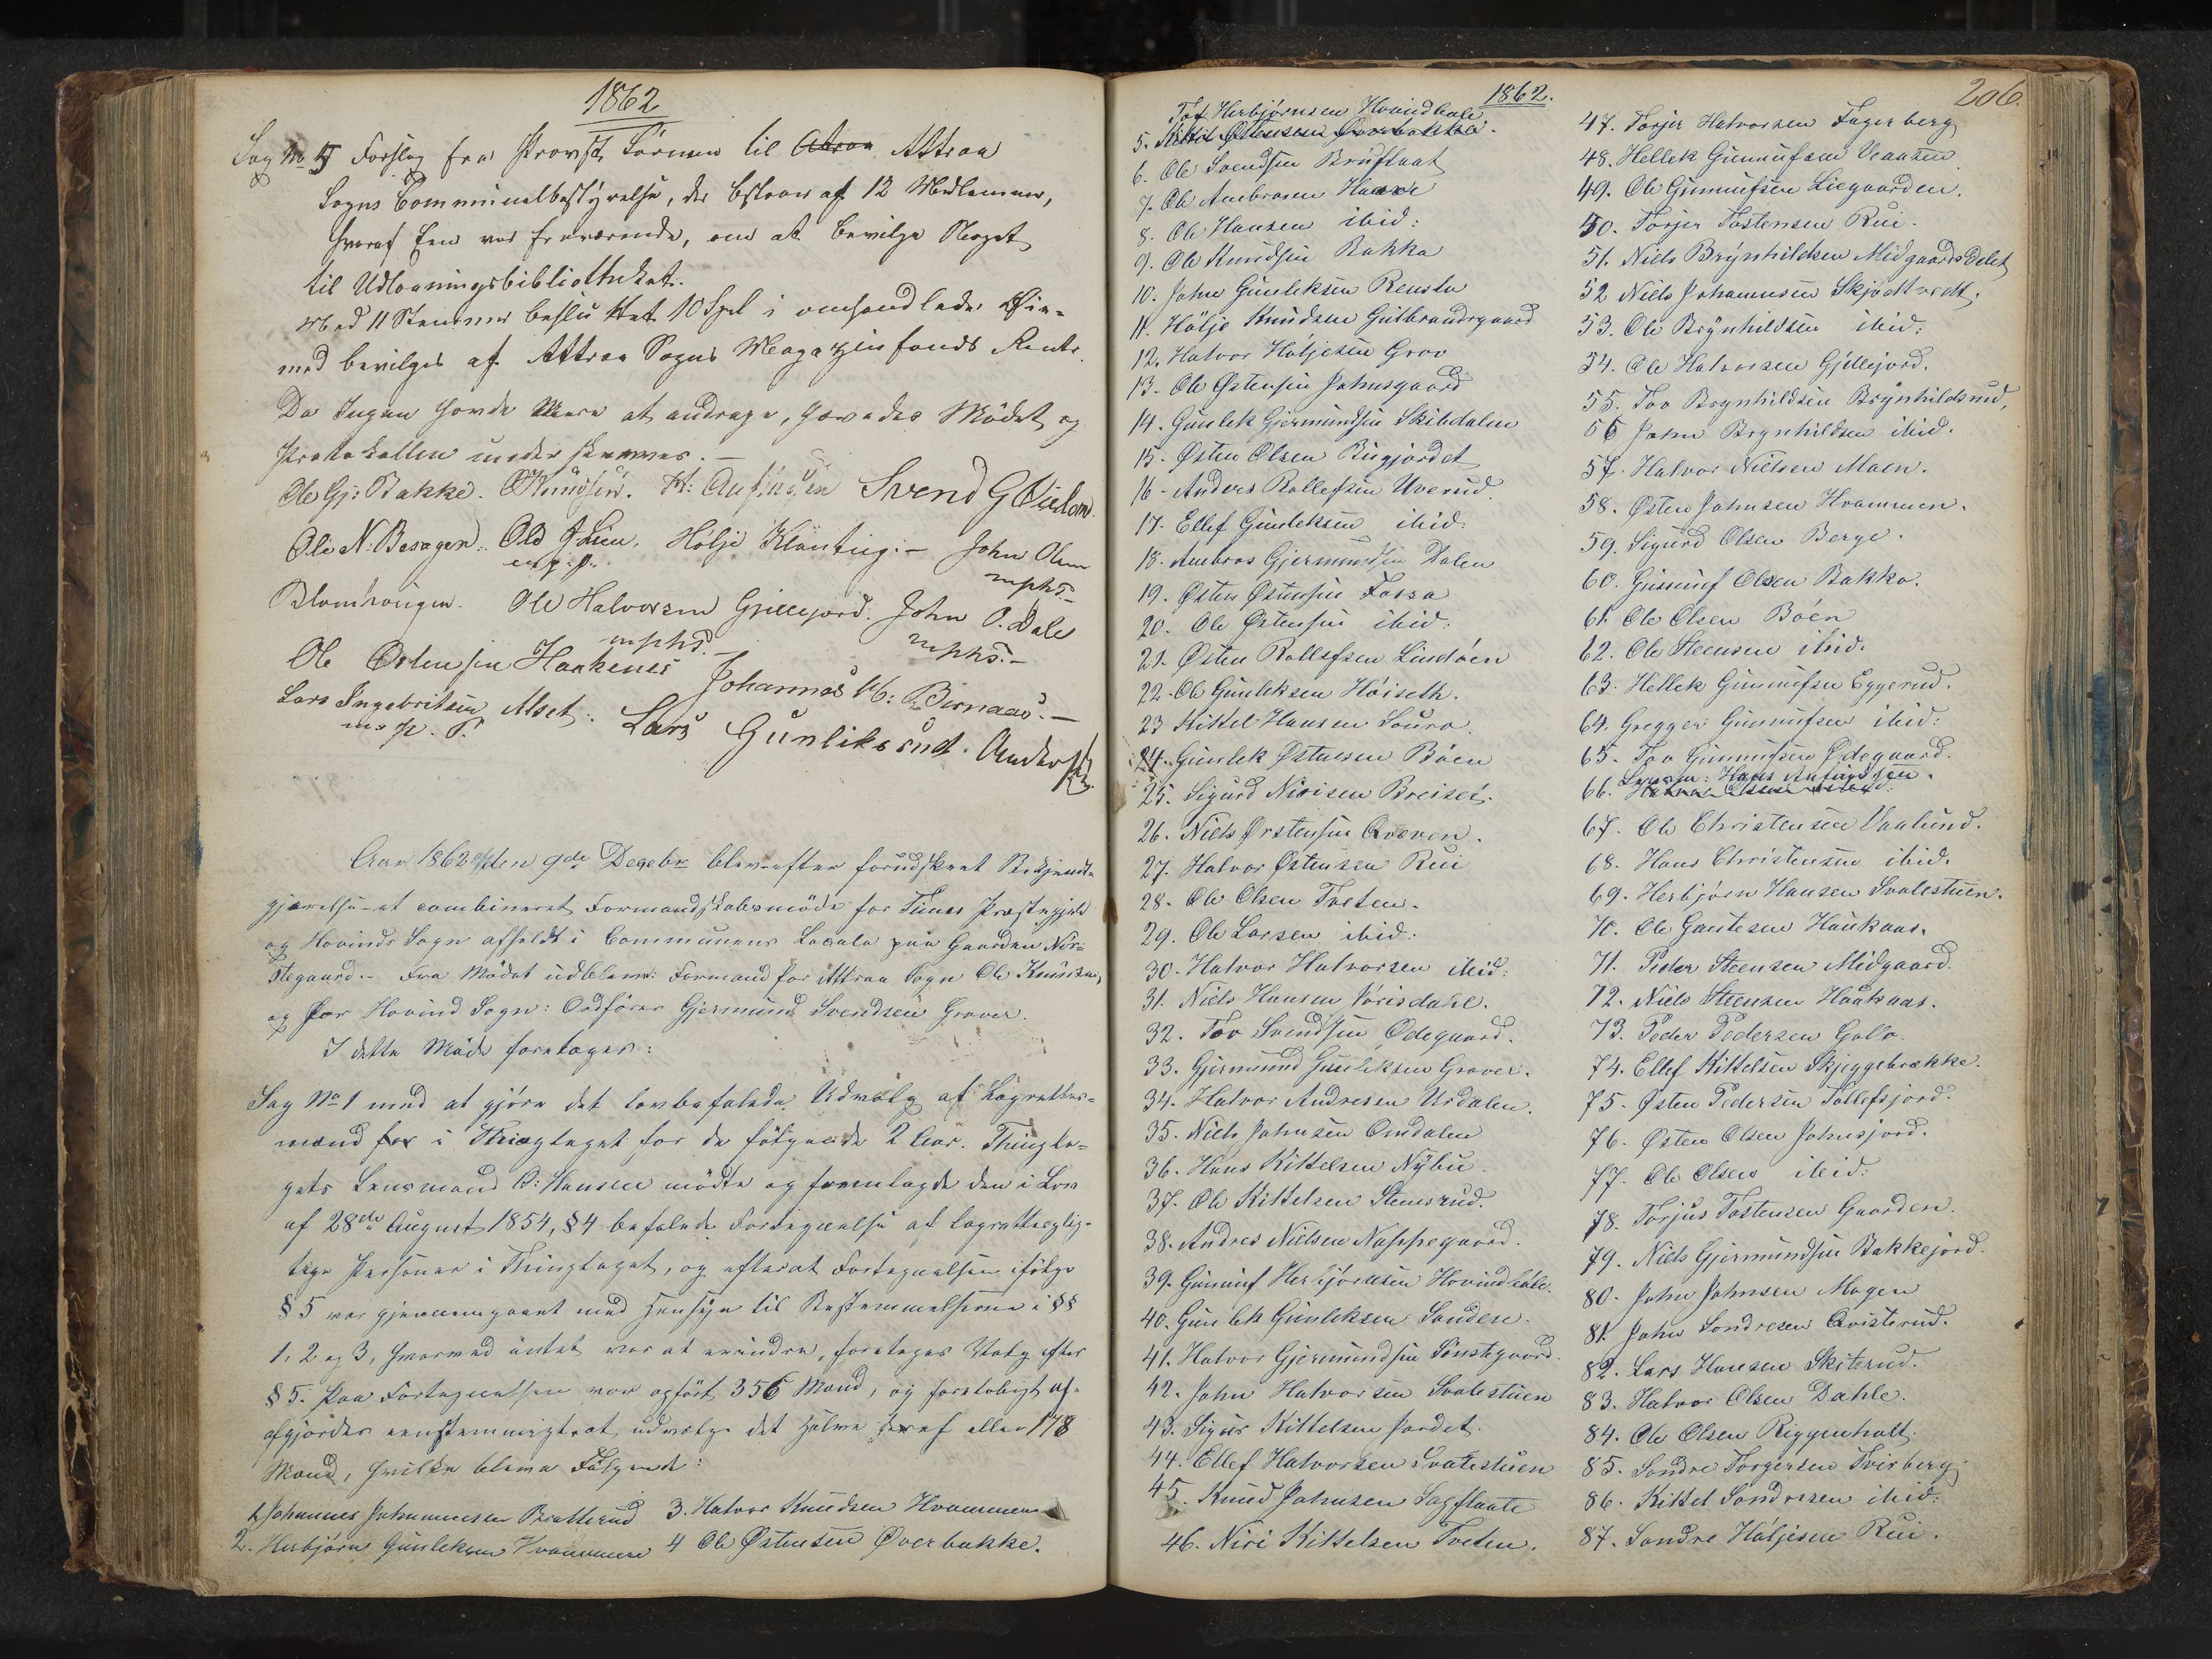 1862
Sag No 5 Forslag fra Provst Sörensen til Atraa Attraa
Sogns Communalbestyrelse, der bestaar af 12 Medlemmer,
hvoraf Een var fraværende, om at bevilge Noget
til Udlaaningsbibliotheket.
Med 11 Stemmer besluttet 10 Spd i omhandlede Øie-
med bevilges af Attraa Sogns Magazinfonds Rente.
Da Ingen havde Mere at andrage, hævedes Mödet og
Protokollen underskreves. —
Ole Gj: Bakke. OKnudsen. H: Anfindsen Svend G Øielom
Ole N. Besagen. Ole J Lien. Hölje Kløntvig. — John Olsen
m. p. p. mphs. —
Blomhougen. Ole Halvorsen Gjellejord. John O. Dale
mphs. — mphs. —
Ole Østensen Haakenes Johannes M: Bernaas. —
Lars Ingebritsen Alset. Lars Gunliksund. Anders
m. p. P.
Aar 1862 den 9de Decebr blev efter forudskeet Bekjendt-
gjørelse et combineret Formandskabsmöde for Tinns Præstegjeld
og Hovinds Sogn afholdt i Communens Locale paa Gaarden Nör-
stegaard. — Fra Mødet udbleve: Formand for Attraa Sogn Ole Knudsen,
og for Hovind Sogn: Ordförer Gjermund Svendsen Graver.
I dette Möde foretoges:
Sag No 1 med at gjöre det lovbefalede Udvalg af Lagrettes-
mænd for i Thinglaget for de fölgende 2 Aar. Thingla-
gets Lensmand O: Hansen mödte og fremlagde den i Lov
af 28de August 1854, § 4 befalede Fortegnelse af lagrettepligt-
tige Personer i Thinglaget, og efterat Fortegnelsen ifölge
§ 5 var gjennemgaaet med Hensyn til Bestemmelserne i §§
1, 2 og 3, hvorved intet var at erindre, foretoges Valg efter
§ 5. Paa Fortegnelsen var opfört 356 Mand, og foreløbigt af-
afgjördes eenstemmigt, at udvælge det halve heraf eller 178
Mand, hvilke bleve Fölgende:
1. Johannes Johannessen Bratterud 3. Halvor Knudsen Hvammen
2. Herbjørn Gunleksen Hvammen 4 Ole Østensen Øverbakke.
1862.
Tov Herbjørnsen Hovindbøle
5. Kittil Østensen Øverbakke.
6. Ole Svendsen Bruflaat
7. Ole Ambrosen Haave
8. Ole Hansen ibid:
9. Ole Knudsen Bakka
10. John Gunleksen Rensla
11. Hölje Knudsen Gulbrandsgaard
12. Halvor Höljesen Grov
13. Ole Østensen Johnsgaard
14. Gunlek Gjermundsen Skibdalen
15. Østen Olsen Bugjordet
16. Anders Rollefsen Uverud.
17. Ellef Gunleksen ibid:
18. Ambros Gjermundsen Dalen
19. Østen Østensen Fossa
20. Ole Østensen ibid:
21. Østen Rollefsen Lindöen
22. Ole Gunleksen Höiseth.
23 Kittel Hansen Loura.
24. Gunlek Østensen Böen
25. Sigurd Nirisen Breiset.
26. Niels Ørstensen Qværen.
27. Halvor Østensen Rui
28. Ole Olsen Tveten.
29. Ole Larsen ibid:
30. Halvor Halvorsen ibid:
31. Niels Hansen Vörisdahl.
32. Tov Svendsen Ødegaard.
33. Gjermund Gunleksen Graver.
34. Halvor Andresen Urdalen.
35. Niels Johnsen Omdalen
36. Hans Kittelsen Nybu
37. Ole Kittelsen Stensrud.
38. Andres Nielsen Nappegaard.
39. Gunnuf Herbjörnsen Hovindbøle.
40. Gunlek Gunleksen Sanden.
41. Halvor Gjermundsen Sönstegaard.
42. John Halvorsen Svalestuen
43. Sigur Kittelsen Jordet.
44. Ellef Halvorsen Svalestuen
45. Knud Johnsen Sagflaate
46. Niri Kittelsen Tveten.
206.
47. Torjer Halvorsen Fagerberg
48. Hellek Gunnufsen Vraasen
49. Ole Gunnufsen Liegaarden.
50. Torjer Tostensen Rui.
51. Niels Brynhildsen Midgaards Delet
52 Niels Johannesen Skjödtvedt.
53. Ole Brynhildsen ibid:
54. Ole Halvorsen Gjellejord.
55. Tov Brynhildsen Brynhildsrud,
56 John Brynhildsen ibid.
57. Halvor Nielsen Maen.
58. Østen Johnsen Hvammen.
59. Sigurd Olsen Berge.
60. Gunnuf Olsen Bakka.
61. Ole Olsen Böen
62. Ole Steensen ibid.
63. Hellek Gunnufsen Eggerud.
64. Gregger Gunnufsen ibid:
65. Tov Gunnufsen Ødegaard.
Hans Anfindsen.
66.
67. Ole Christensen Vaalund.
68. Hans Christensen ibid.
69. Herbjørn Hansen Svalestuen.
70. Ole Gautesen Haukaas.
71. Peder Steensen Midgaard.
72. Niels Steensen Haukaas.
73. Peder Pedersen Gøllo.
74. Ellef Kittelsen Skjeggebrække.
75. Østen Pedersen Tollefsjord.
76. Østen Olsen Johnsjord.
77. Ole Olsen ibid:
78. Torjus Tostensen Gaarden.
79. Niels Gjermundsen Bakkejord.
80. John Johnsen Mogen
81. John Sondresen Qvisterud.
82. Lars Hansen Skiterud.
83. Halvor Olsen Dahle.
84. Ole Olsen Riggenhalt.
85. Sondre Torgersen Tvirberg
86. Kittel Sondresen ibid:
87. Sondre Höljesen Rui.